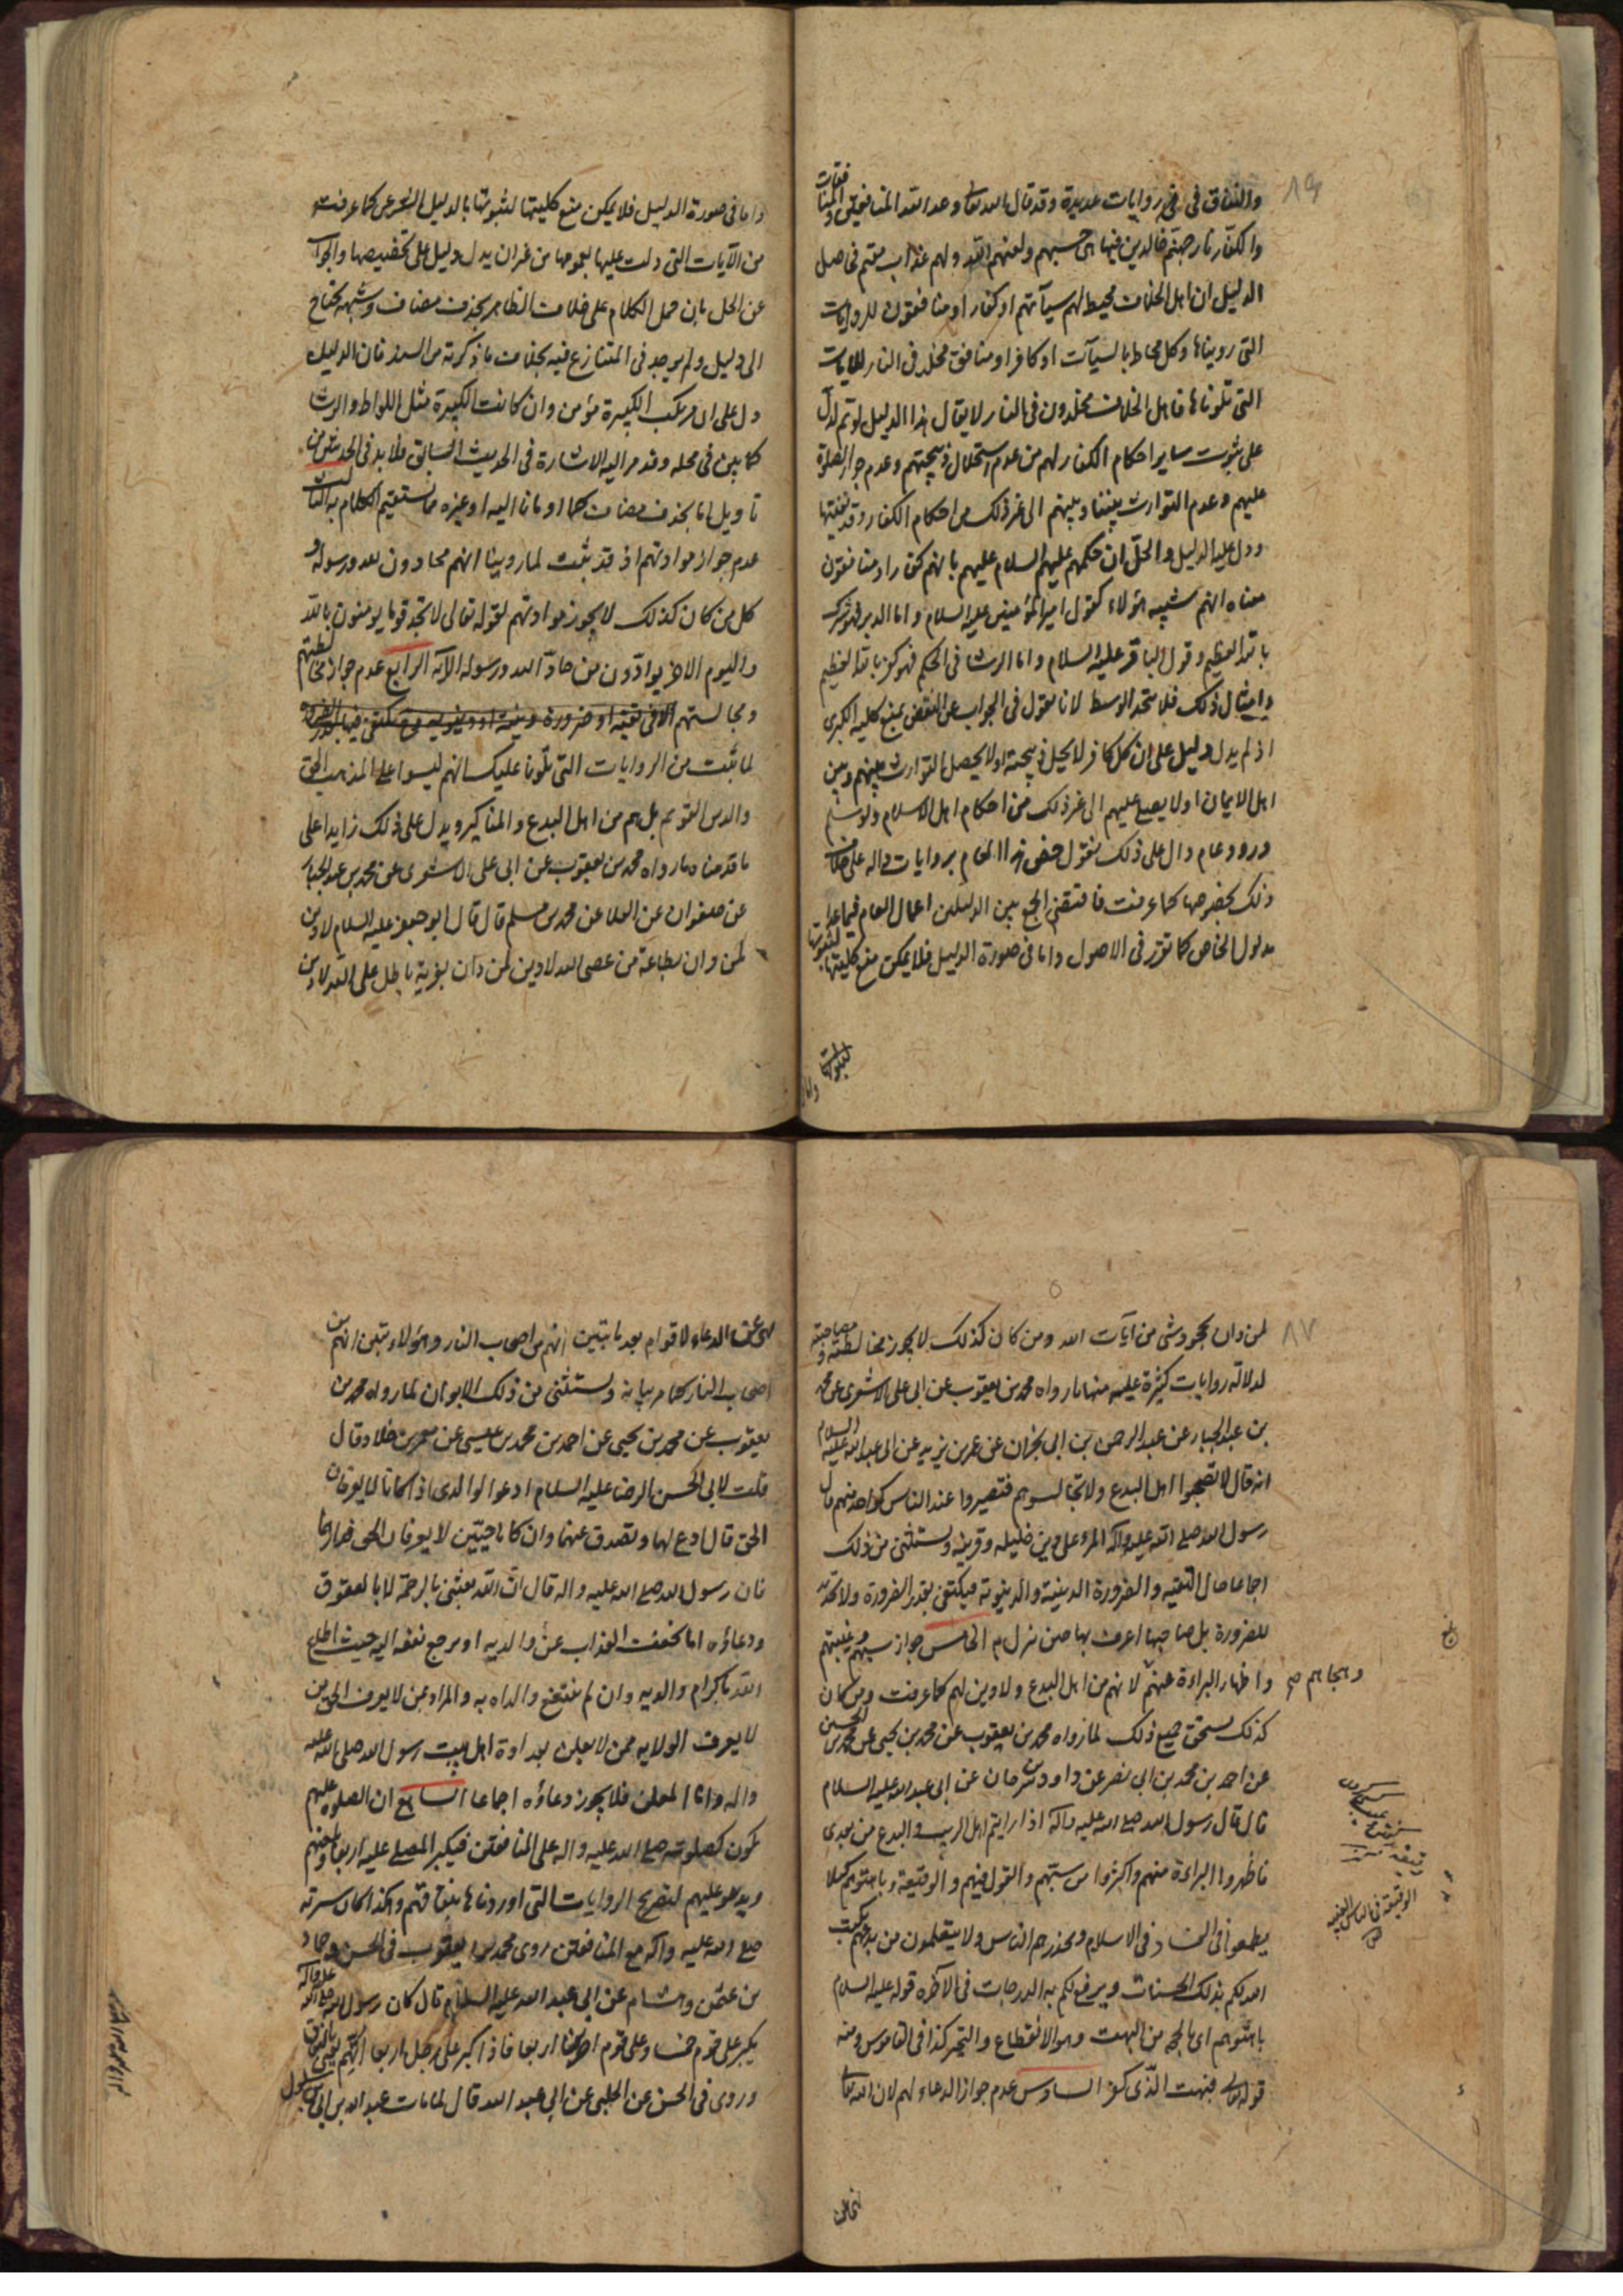 ٨٩
والنفاق في روايات عديدة وقد قال الله تعالى وعد الله المنافقين والمنافقات
والكفار نار جهنم خالدين فيها هي حسبهم ولعنهم الله ولهم عذاب مقيم في حاصل
الدليل ان اهل الخلاف محيط لهم سيآتهم او كفار او منافقون للروايات
التي رويناها وكل محاط بالسيآت او كافر او منافق مخلد في النار للايات
التي تلوناها فاهل الخلاف مخلدون في النار لا يقال هذا الدليل لو تم لدل
على ثبوت ساير احكام الكفار لهم من عدم استحلال ذبيحتهم وعدم جواز الصلوة
عليهم وعدم التوارث بيننا وبينهم الى غير ذلك من احكام الكفار وقد نفيتها
ودل عليه الدليل والحل ان حكمهم عليهم السلام عليهم بانهم كفار او منافقون
معناه انهم شبيه هؤلاء كقول امير المؤمنين عليه السلام واما الدبر فهو شرك
بالله العظيم وقول الباقر عليه السلام واما الرشا في الحكم فهو كفر بالله العظيم
وامثال ذلك فلا يتحد الوسط لانا نقول في الجواب عن النقض بمنع كلية الكبرى
اذ لم يدل دليل على ان كل كافر لا يحل ذبيحته او لا يحصل التوارث بينهم وبين
اهل الايمان او لا يصلى عليهم الى غير ذلك من احكام اهل الاسلام ولو سلم
ورود عام دال على ذلك نقول خص هذا العام بروايات دالة على خلاف
ذلك بخصوصها كما عرفت فاقتضى الجمع بين الدليلين اعمال العام فيما عدا
مدلول الخاص كما تقرر في الاصول واما في صورة الدليل فلا يمكن منع كليتها لثبوتها
لثبوتها
واما في صورة الدليل فلا يمكن منع كليتها لثبوتها بالدليل الشرعي كما عرفت
من الآيات التي دلت عليها بعمومها من غير ان يدل دليل على تخصيصها والجواب
عن الحل بان حمل الكلام على خلاف الظاهر بحذف مضاف وشبهه يحتاج
الى دليل ولم يوجد في المتنازع فيه بخلاف ما ذكرته من السند فان الدليل
دل على ان مرتكب الكبيرة مؤمن وان كانت الكبيرة مثل اللواط والرشا
كما بين في محله وقد مر اليه الاشارة في الحديث السابق فلا بد في الحديثين من
تاويل اما بحذف مضاف كما اومأنا اليه او غيره مما يستقيم الكلام به الثالث
عدم جواز موادتهم اذ قد ثبت لما روينا انهم محادون لله ورسوله و
كل من كان كذلك لا يجوز موادتهم لقوله تعالى لا تجد قوما يومنون بالله
واليوم الاخر يوادّون من حادّ الله ورسوله الآية الرابع عدم جواز مخالطتهم
ومجالستهم الا في تقية او ضرورة دينية او دنيوية
لما ثبت من الروايات التي تلونا عليك انهم ليسوا على المذهب الحق
والدين القويم بل هم من اهل البدع والمناكير ويدل على ذلك زايدا على
ما قدمناه ما رواه محمد بن يعقوب عن ابي علي الاشعري عن محمد بن عبد الجبار
عن صفوان عن العلا عن محمد بن مسلم قال قال ابو جعفر عليه السلام لا دين
لمن دان بطاعة من عصى الله لا دين لمن دان بفرية باطل على الله لا دين
٨٧
لمن دان بجحود شي من آيات الله ومن كان كذلك لا يجوز مخالطته ومصاحبته
لدلالة روايات كثيرة عليه منها ما رواه محمد بن يعقوب عن ابي علي الاشعري عن محمد
بن عبد الجبار عن عبد الرحمن بن ابي نجران عن عمر بن يزيد عن ابي عبد الله عليه السلام
انه قال لا تصحبوا اهل البدع ولا تجالسوهم فتصيروا عند الناس كواحد منهم قال
رسول الله صلى الله عليه وآله المرء على دين خليله وقرينه ويستثنى من ذلك
اجماعا حال التقية والضرورة الدينية والدنيوية فيكتفى بقدر الضرورة ولا تحديد
للضرورة بل صاحبها اعرف بها حين نزل به الخامس جواز سبهم وغيبتهم
وهجاهم صح
واظهار البراءة عنهم لانهم من اهل البدع ولا دين لهم كما عرفت ومن كان
كذلك يستحق جميع ذلك لما رواه محمد بن يعقوب عن محمد بن يحيى عن محمد بن الحسين
عن احمد بن محمد بن ابي نصر عن داود بن سرحان عن ابي عبد الله عليه السلام
قال قال رسول الله صلى الله عليه وآله اذا رايتم اهل الريب والبدع من بعدي
فاظهروا البراءة منهم واكثروا من سبهم والقول فيهم والوقيعة وباهتوهم كيلا
يطمعوا في الفساد في الاسلام ويحذرهم الناس ولا يتعلمون من بدعهم يكتب
الله لكم بذلك الحسنات ويرفع لكم به الدرجات في الاخرة قوله عليه السلام
باهتوهم اي بالحجة من البهت وهو الانقطاع والتحير كذا في القاموس ومنه
قوله تعالى فبهت الذي كفر السادس عدم جواز الدعاء لهم لان الله تعالى
الوقيعة في الناس الغيبة
نهى عن
نهى عن الدعاء لاقوام بعد ما تبين انهم من اصحاب النار وهؤلاء تبين انهم من
اصحاب النار كما مر بيانه ويستثنى من ذلك الابوان لما رواه محمد بن
يعقوب عن محمد بن يحيى عن احمد بن محمد بن عيسى عن معمر بن خلاد قال
قلت لابي الحسن الرضا عليه السلام ادعوا لوالدي اذا كانا لا يعرفان
الحق قال ادع لهما وتصدق عنهما وان كانا حيين لا يعرفان الحق فدارهما
فان رسول الله صلى الله عليه واله قال ان الله بعثني بالرحمة لا بالعقوق
ودعاؤه اما يخفف العذاب عن والديه او يرجع نفعه اليه حيث اطاع
الله باكرام والديه وان لم ينتفع والداه به والمراد بمن لا يعرف الحق من
لا يعرف الولاية ممن لا يعلن بعداوة اهل بيت رسول الله صلى الله عليه
واله واما المعلن فلا يجوز دعاؤه اجماعا السابع ان الصلوة عليهم
تكون كصلوته صلى الله عليه واله على المنافقين فيكبر المصلي عليه اربعا ويلعنهم
ويدعو عليهم لتصريح الروايات التي اوردناها بنفاقهم وهكذا كان سيرته
صلى الله عليه واله مع المنافقين روى محمد بن يعقوب في الحسن وحماد
بن عثمن وهشام عن ابي عبد الله عليه السلام قال كان رسول الله صلى الله عليه وآله
يكبر على قوم خمسا وعلى قوم اخرين اربعا فاذا كبر على رجل اربعا اتهم يعني بالنفاق
وروى في الحسن عن الحلبي عن ابي عبد الله قال لما مات عبد الله بن ابي سلول